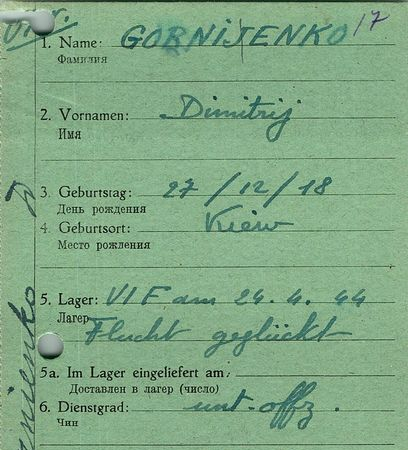 1. Name: GORNIJENKO 17
Фамилия
2. Vornamen: Dimitrij
Имя
3. Geburtstag: 27/12/18
День рождения
4. Geburtsort: Kiew
Место рождения
5. Lager: VI F am 24. 4. 44
Лагер
Flucht geglückt
5a. Im Lager eingeliefert am:
Доставлен в лагер (число)
6. Dienstgrad: unt-offz.
Чин